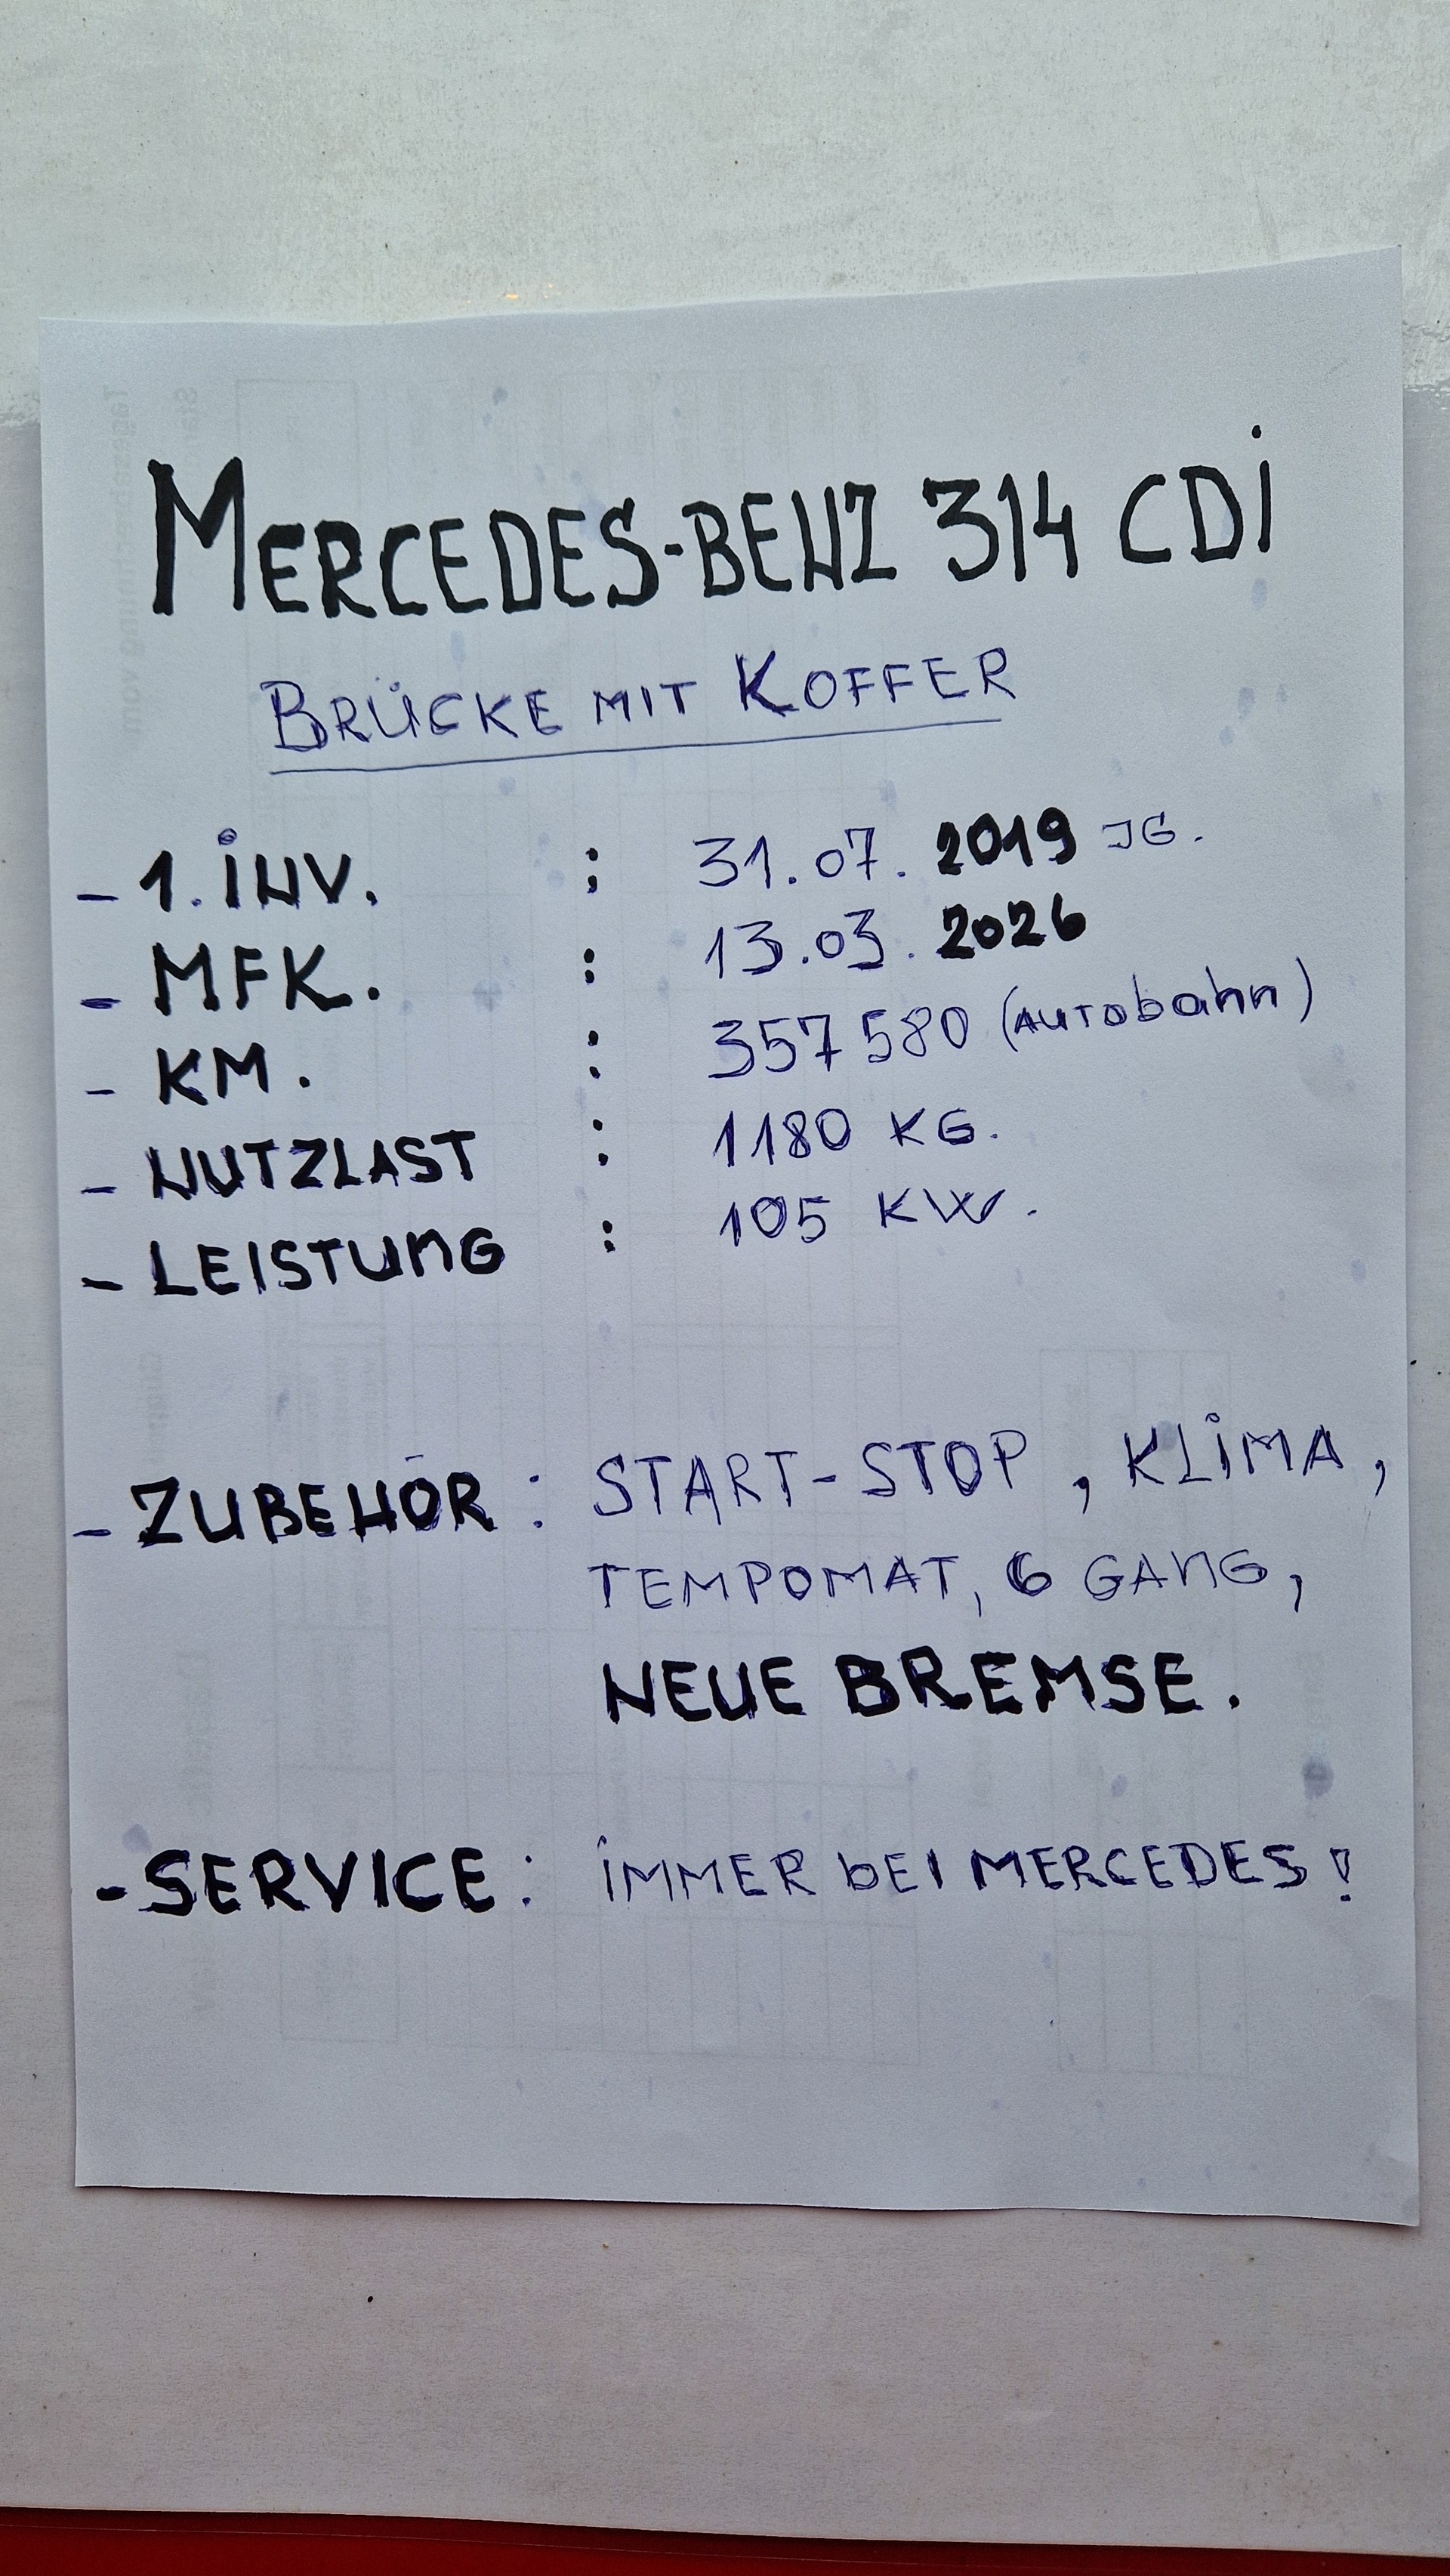 MERCEDES-BENZ 314 CDi
BRÜCKE MIT KOFFER
- 1. iNV. : 31.07.2019 JG.
- MFK. : 13.03.2026
- KM. : 357580 (AUTObahn)
- NUTZLAST : 1180 KG.
- LEISTUNG : 105 KW.
- ZUBEHÖR : START-STOP, KLiMA,
TEMPOMAT, 6 GANG,
NEUE BREMSE.
- SERVICE : iMMER bEI MERCEDES!